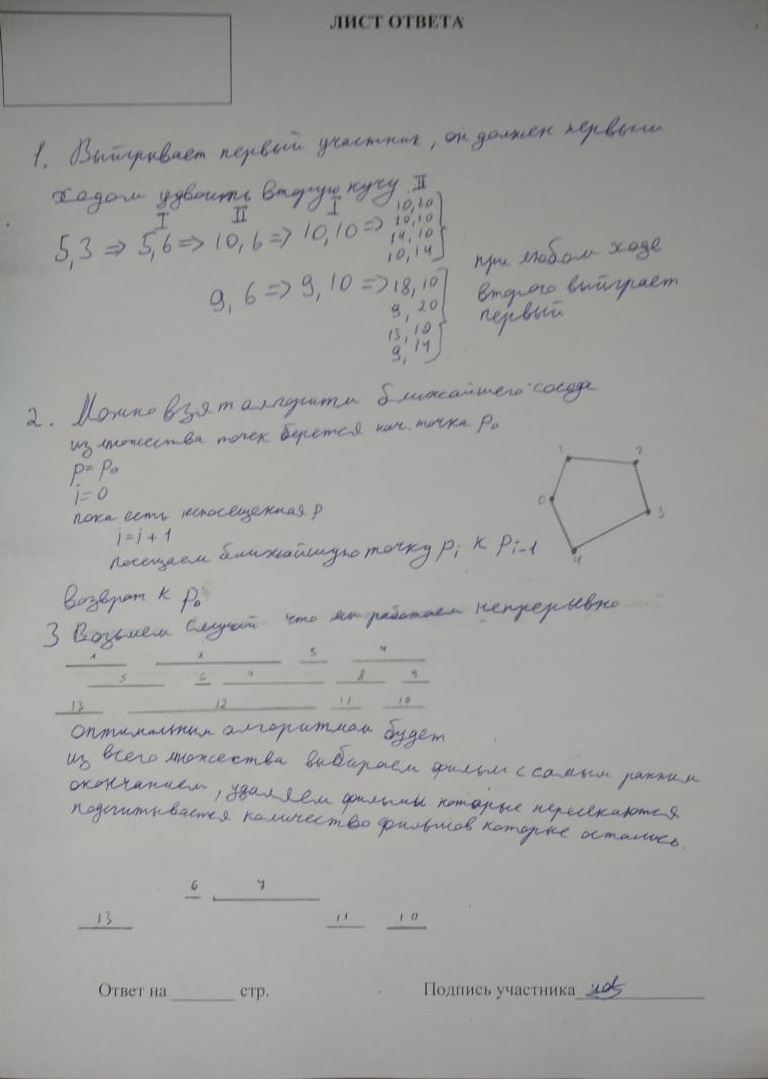 ЛИСТ ОТВЕТА
1. Выйгрывает первый участник, он должен первым
ходом удвоить вторую кучу.
I II I II
5,3 => 5,6 => 10,6 => 10,10 => 10,20
20,10
14,10
10,14
9,6 => 9,10 => 18,10
9,20
13,10
9,14
при любом ходе
второго выйграет
первый
2. Можно взят алгоритм ближайшего соседа
из множества точек берется нач. точка p0
p = p0
i = 0
пока есть непосещенная p
i = i + 1
посещаем ближайшую точку pi к pi-1
возврат к p0
0 1 2 3 4
3 Возьмем случай что мы работаем непрерывно
1 2 3 4
5 6 7 8 9
13 12 11 10
оптимальним алгоритмом будет
из всего множества выбираем фильм с самым ранним
окончанием, удаляем фильмы которые пересекаются
подсчитывается количество фильмов которые остались.
6 7
13 11 10
Ответ на ______ стр.
Подпись участника